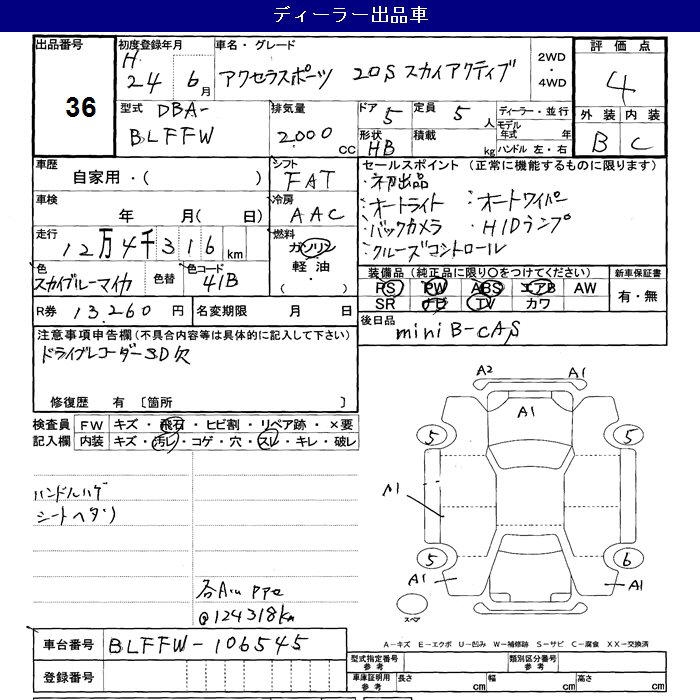 ディーラー出品車
出品番号
36
初度登録年月
H
24 6月
車名・グレード
アクセラスポーツ 20S スカイアクティブ
2WD
・
4WD
評価点
4
外装 内装
B C
型式 DBA-
BLFFW
排気量
2000 CC
ドア 5
定員 5 人
形状 HB
積載 kg
ディーラー・並行
モデル年式 年
ハンドル 左・右
車歴
自家用・( )
シフト
FAT
車検
年 月( 日)
冷房
AAC
走行
12万4千316km
燃料
ガソリン
軽油
・( )
色
スカイブルーマイカ
色替
色コード
41B
R券 13,260 円
名変期限 月 日
セールスポイント (正常に機能するものに限ります)
・初出品
・オートライト ・オートワイパー
・バックカメラ ・HIDランプ
・クルーズコントロール
装備品(純正品に限り○をつけてください)
新車保証書
PS PW ABS エアB AW
SR ナビ TV カワ
有・無
後日品
miniB-CAS
注意事項申告欄(不具合内容等は具体的に記入して下さい)
ドライブレコーダーSD欠
修復歴 有 〔箇所 〕
検査員
記入欄
FW キズ・飛石・ヒビ割・リペア跡・×要
内装 キズ・汚レ・コゲ・穴・スレ・キレ・破レ
ハンドルハゲ
シートヘタリ
@124318km
A2 A1
A1
5 5
A1
5 6
A1 A1
スペア
A-キズ E-エクボ U-凹み W-補修跡 S-サビ C-腐食 XX-交換済
車台番号 BLFFW-106545
登録番号
型式指定番号
参考
類別区分番号
参考
車庫証明用
参考
長さ cm 幅 cm 高さ cm